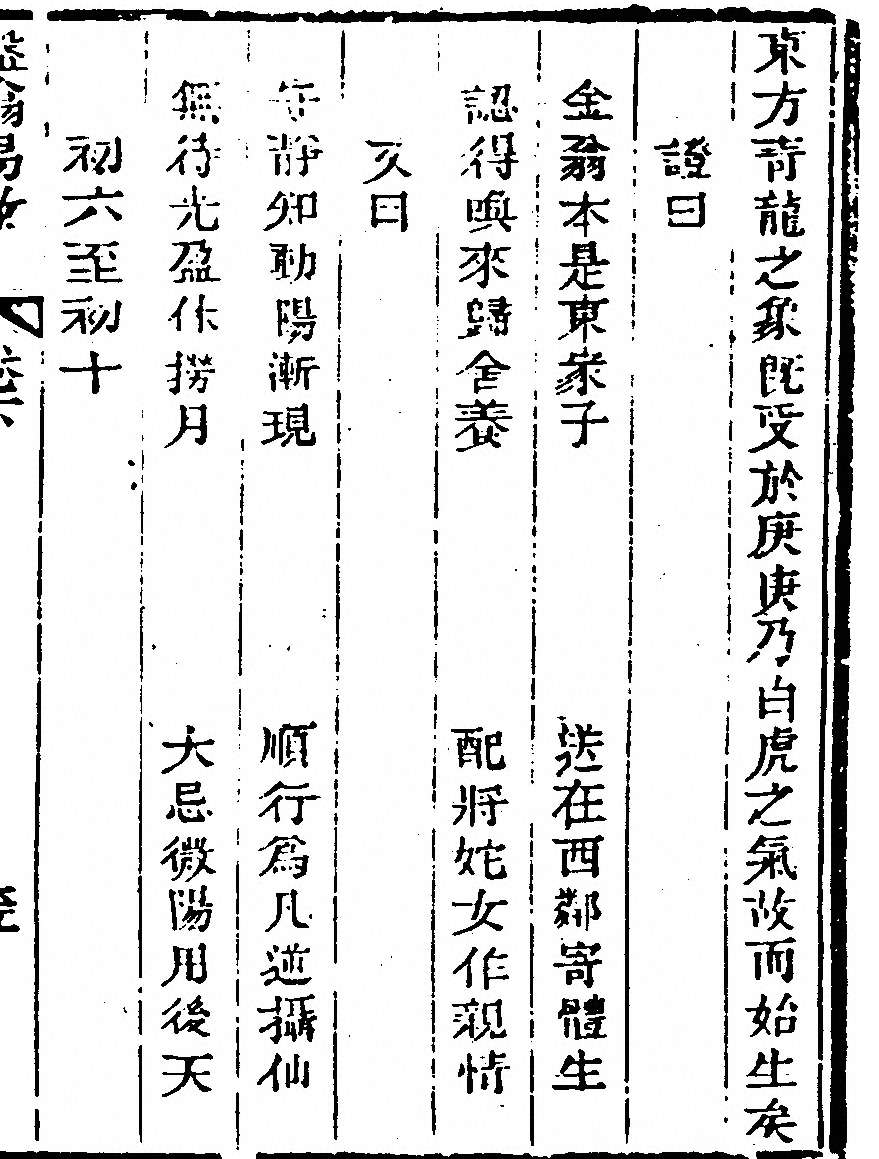 東方青龍之象既受於庚庚乃白虎之氣故而始生矣
證曰
金翁本是東家子 送在西鄰寄體生
認得喚來歸舍養 配將姹女作親情
又曰
守靜知動陽漸現 順行為凡逆攝仙
無待光盈休撈月 大忌微陽用後天
初六至初十